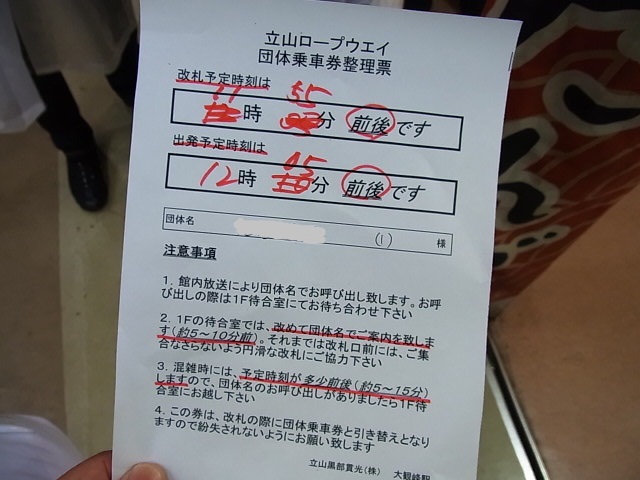 立山ロープウエイ
団体乗車券整理票
改札予定時刻は
11時 55分 前後です
出発予定時刻は
12時 05分 前後です
団体名 (1) 様
注意事項
1．館内放送により団体名でお呼び出し致します。お呼
び出しの際は1F待合室にてお待ち合わせ下さい
2．1Fの待合室では、改めて団体名でご案内を致しま
す（約5～10分前）。それまでは改札口前には、ご集
合なさらないよう円滑な改札にご協力下さい
3．混雑時には、予定時刻が多少前後（約5～15分）
しますので、団体名のお呼び出しがありましたら1F待
合室にお越し下さい
4．この券は、改札の際に団体乗車券と引き替えとなり
ますので紛失されないようにお願い致します
立山黒部貫光（株） 大観峰駅